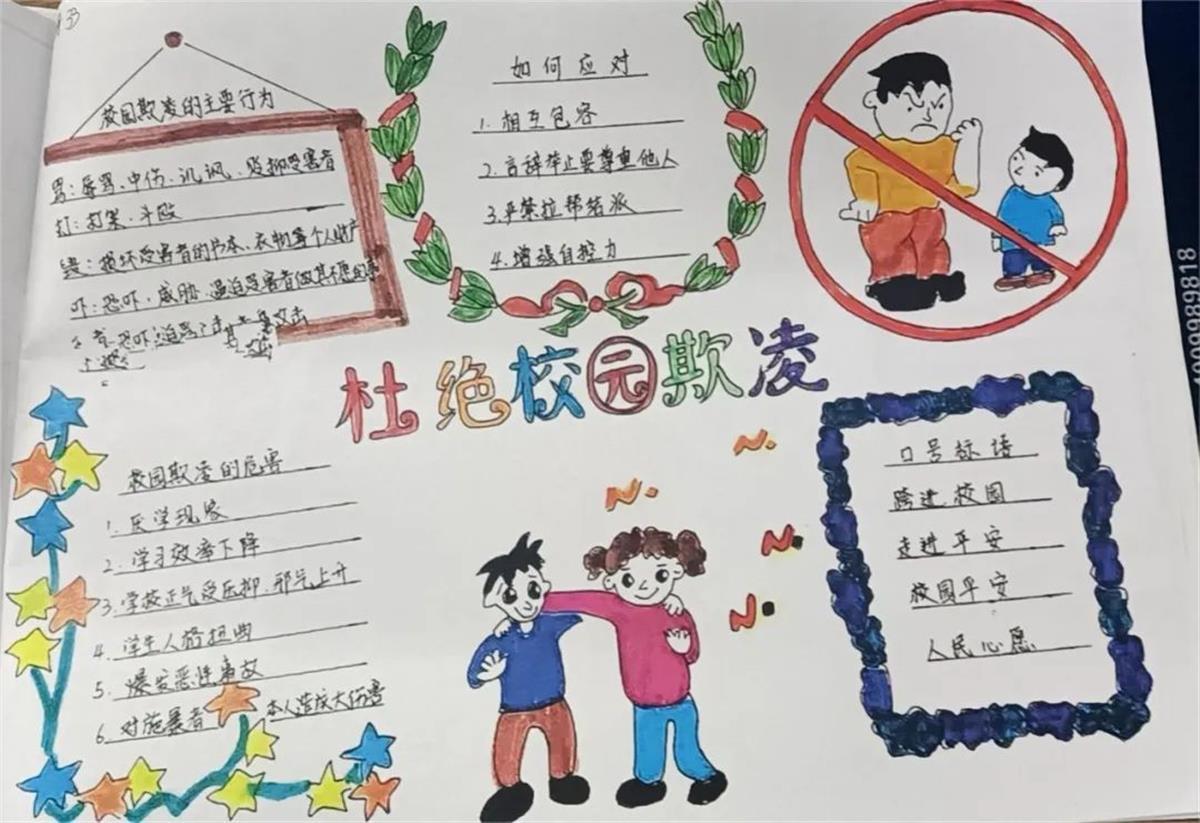 校园欺凌的主要行为
骂:辱骂、中伤、讥讽、贬抑受害者
打:打架、斗殴
毁:损坏受害者的书本、衣物等个人财产
吓:恐吓、威胁、逼迫受害者做其不愿的事
恐吓
攻击
如何应对
1.相互包容
2.言辞举止要尊重他人
3.严禁拉帮结派
4.增强自控力
杜绝校园欺凌
校园欺凌的危害
1.厌学现象
2.学习效率下降
3.学校正气受压抑.邪气上升
4.学生人格扭曲
5.爆发恶性事故
6.对施暴者 本人造成大伤害
口号标语
跨进校园
走进平安
校园平安
人民心愿
989818